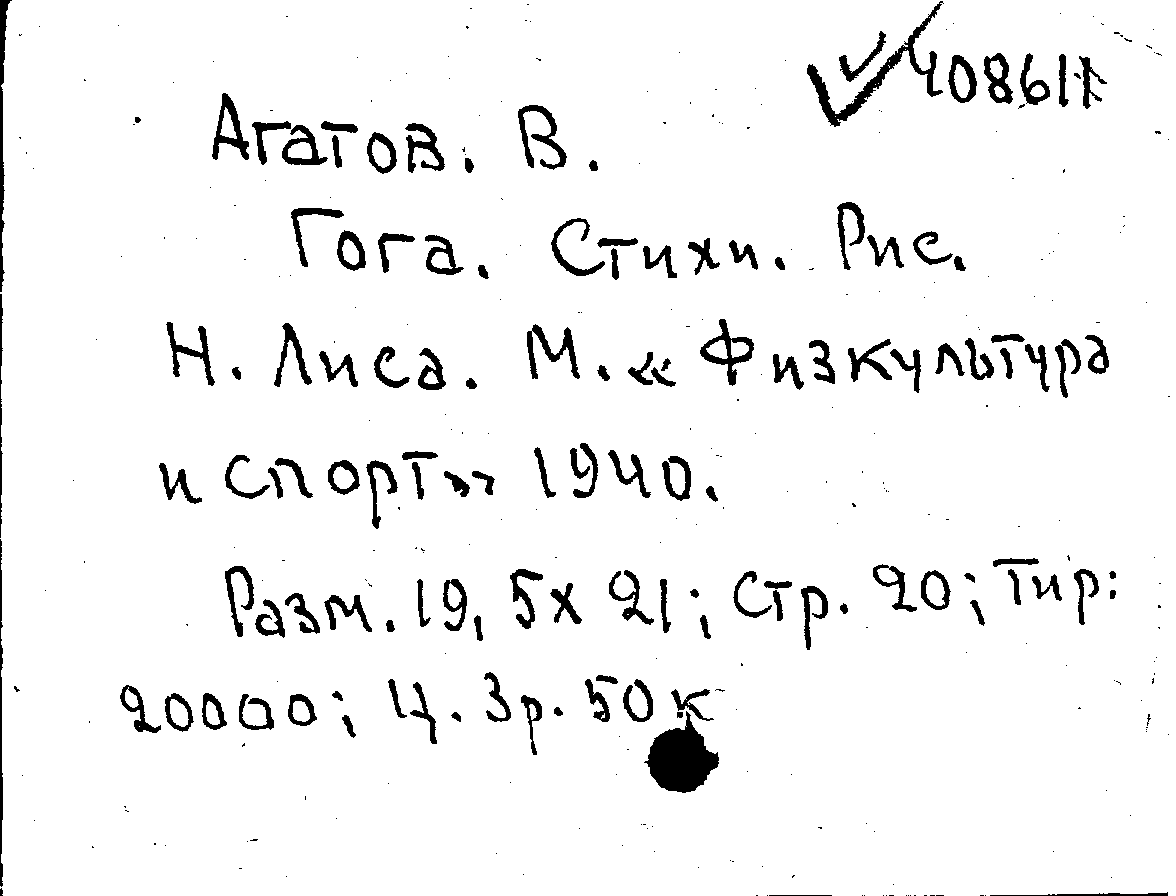 40861
Агатов. В.
Гога. Стихи. Рис.
Н. Лиса. М. « Физкультура
и спорт» 1940.
Разм. 19, 5х 21; Стр. 20; Тир:
20000; Ц. 3р. 50 к